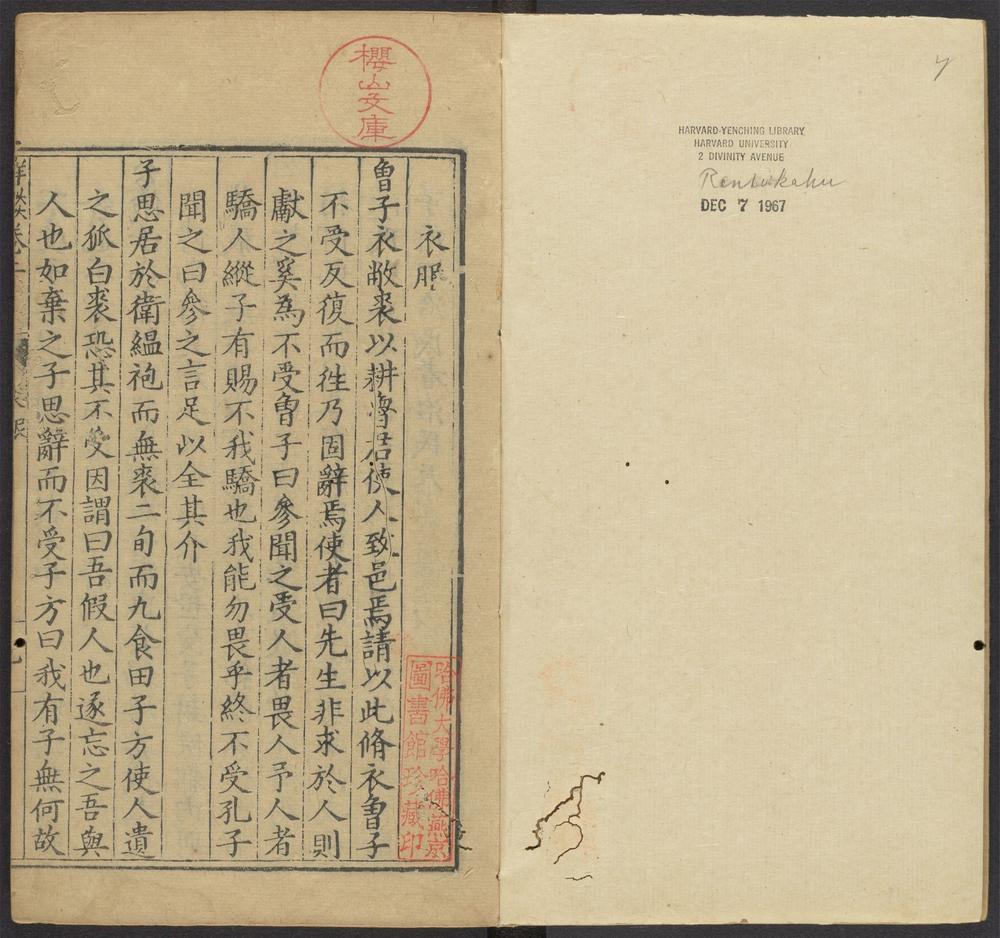 HARVARD-YENCHING LIBRARY
HARVARD UNIVERSITY
2 DIVINITY AVENUE
DEC 7 1967
櫻山文庫
衣服
魯子衣敝裘以耕魯君使人致邑焉請以此脩衣魯子
不受反復而徃乃固辭焉使者曰先生非求於人則
獻之奚為不受魯子曰參聞之受人者畏人予人者
驕人縱子有賜不我驕也我能勿畏乎終不受孔子
聞之曰參之言足以全其介
子思居於衛緼袍而無裘二旬而九食田子方使人遺
之狐白裘恐其不受因謂曰吾假人也遂忘之吾與
人也如棄之子思辭而不受子方曰我有子無何故
哈佛大學哈佛燕京
圖書館珍藏印